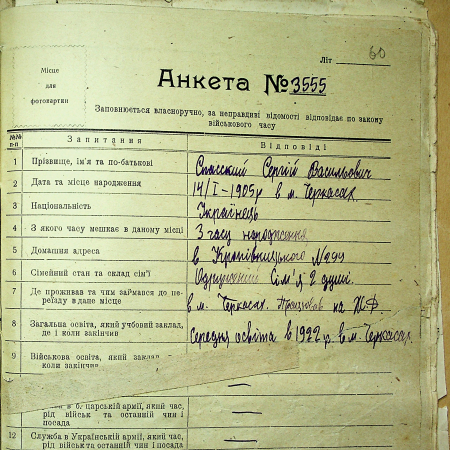 Літ 60
Місце
для
фотокартки
Анкета № 3555
Заповнюється власноручно, за неправдиві відомості відповідає по закону
військового часу
№№ п-п Запитання Відповіді
1 Прізвище, ім'я та по-батькові Спасский Сергій Васильович
2 Дата та місце народження 14/I-1905 р в м. Черкасах.
3 Національність Українець
4 З якого часу мешкає в даному місці З часу народження
5 Домашня адреса в. Кропівницького № 99
6 Сімейний стан та склад сім'ї Одружений Сім'я 2 душі.
7 Де проживав та чим займався до пе-
реїзду в дане місце в м. Черкасах. Працював на
8 Загальна освіта, який учбовий заклад,
де і коли закінчив Середня освіта в 1922 р. в м. Черкасах.
9 Військова освіта, який заклад
коли закінчив —
в б. царській армії, який час,
рід військ та останній чин і
посада —
12 Служба в Українській армії, який час,
рід військ та останній чин і посада —